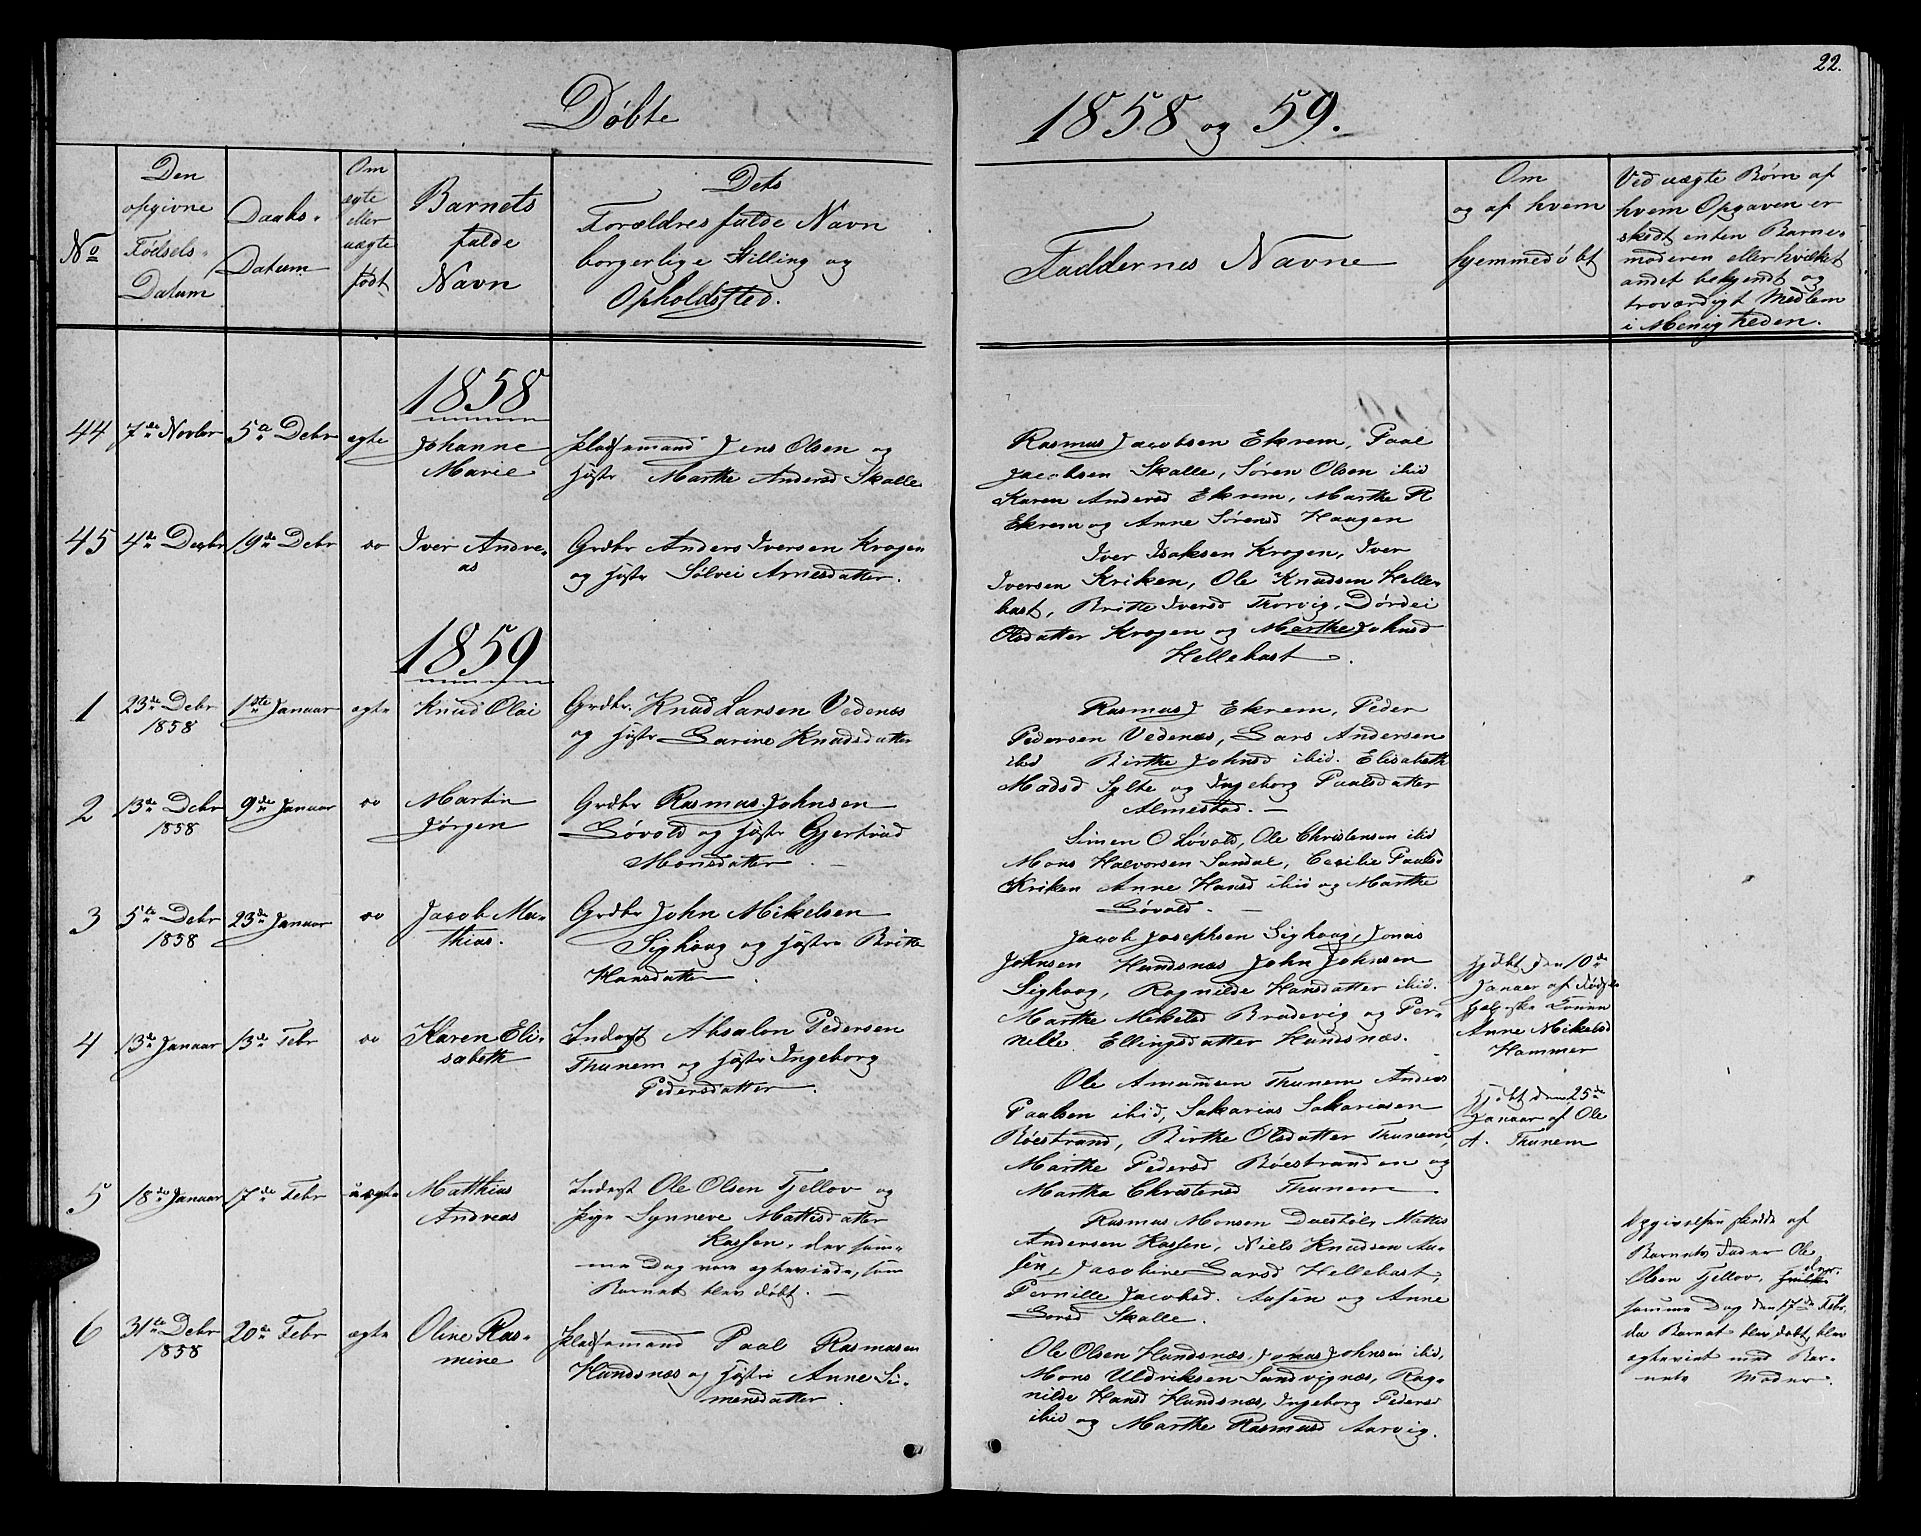 22.
Døbte
1858 og 59.
No
Den
opgivne
Fødsels-
Datum
Daabs-
Datum
Om
ægte
eller
uægte
født
Barnets
fulde
Navn
Dets
Forældres fulde Navn
borgerlige Stilling og
Opholdssted.
Faddernes Navne
Om
og af hvem
hjemmedøbt
Ved uægte Børn af
hvem Opgaven er
skedt enten Barne-
moderen eller hvilket
andet bekjendt og
troværdigt Medlem
i Menigheden.
1858
44 7de Novbr 5te Debr ægte Johanne
Marie
Pladsemand Jens Olsen og
Hustr Marthe Andersd Skalle
Rasmus Jacobsen Ekrem, Paal
Jacobsen Skalle, Søren Olsen ibid
Karen Andersd Ekrem, Marthe R
Ekrem og Anne Sørensd Haugen
45 4de Decbr 19de Debr do Iver Andre-
as
Grdbr Anders Iversen Krogen
og Hustr Sølvei Arnesdatter.
Iver Isaksen Krogen, Iver
Iversen Kriken, Ole Knudsen Helle-
bast, Britte Iversd Thorvig, Dørdei
Olsdatter Krogen og Marthe Johnsd
Hellebast.
1859
1 23de Debr
1858
1ste Januar ægte Knud Olai
Grdbr. Knud Larsen Vedenæs
og Hustr Sarine Knudsdatter
Rasmus J Ekrem, Peder
Pedersen Vedenæs, Lars Andersen
ibid Birthe Johnsd ibid. Elisabeth
Madsd Sylte og Ingeborg Paalsdatter
Almestad. —
2 13de Debr
1858
9de Januar do Martin
Jørgen
Grdbr Rasmus Johnsen
Løvold og Hustr Gjertrud
Monsdatter. —
Simen O Løvold, Ole Christensen ibid
Mons Halvorsen Sandal, Cecilie Paalsd
Kriken Anne Hansd ibid og Marthe
Løvold. —
3 5te Debr
1858
23de Januar do Jacob Ma-
thias.
Grdbr John Mikelsen
Sighaug og Hustru Britte
Hansdatter
Jacob Josephsen Sighaug, Jonas
Johnsen Hundsnæs John Johnsen
Sighaug, Ragnilde Hansdatter ibid.
Marthe Mikelsd Bradevig og Per-
nille Ellingsdatter Hundsnæs.
Hjdøbt den 10de
Januar af Fødsels-
hjelperske Konen
Anne Mikelsd
Hammer
4 13de Januar 13de Febr do Karen Eli-
sabeth
Inderst Absalon Pedersen
Thunem og Hustr Ingeborg
Pedersdatter.
Ole Amundsen Thunem Anders
Paalsen ibid, Sakarias Sakariasen
Røestrand, Birthe Olsdatter Thunem,
Marthe Pedersd Røestranden og
Martha Christensd Thunem.
Hjdøbt den 25de
Januar af Ole
A. Thunem
5 18de Januar 17de Febr uægte Matthias
Andreas
Inderst Ole Olsen Fjellov og
Pige Synneve Mattisdatter
Hassen, der sam-
me Dag vare ægteviede, som
Barnet blev døbt. —
Rasmus Monsen Davstøl, Mattis
Andersen Hassen, Niels Knudsen Aa-
sen, Jacobine Larsd Hellebast,
Pernille Jacobsd. Aasen og Anne
Larsd Skalle.
Opgivelsen skedde af
Barnets Fader Ole
Olsen Fjellov, der
samme Dag den 17de Febr.
da Barnet blev døbt, blev
ægteviet med Bar-
nets Moder.
6 31te Debr
1858
20de Febr ægte Oline Ras-
mine
Pladsemand Paal Rasmusen
Hundsnæs og Hustru Anne Si-
mensdatter.
Ole Olsen Hundsnæs, Jonas Johnsen ibid,
Mons Uldriksen Sandvignæs, Rag-
nilde Hansd Hundsnæs, Ingeborg Pedersd
ibid og Marthe Rasmusd Aarvig.